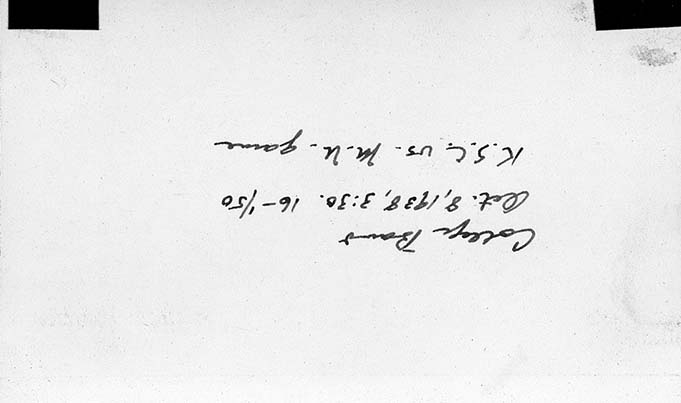 College Band
Oct. 8, 1938, 3:30. 16 - 1/50
K.S.C. vs. M.U. game